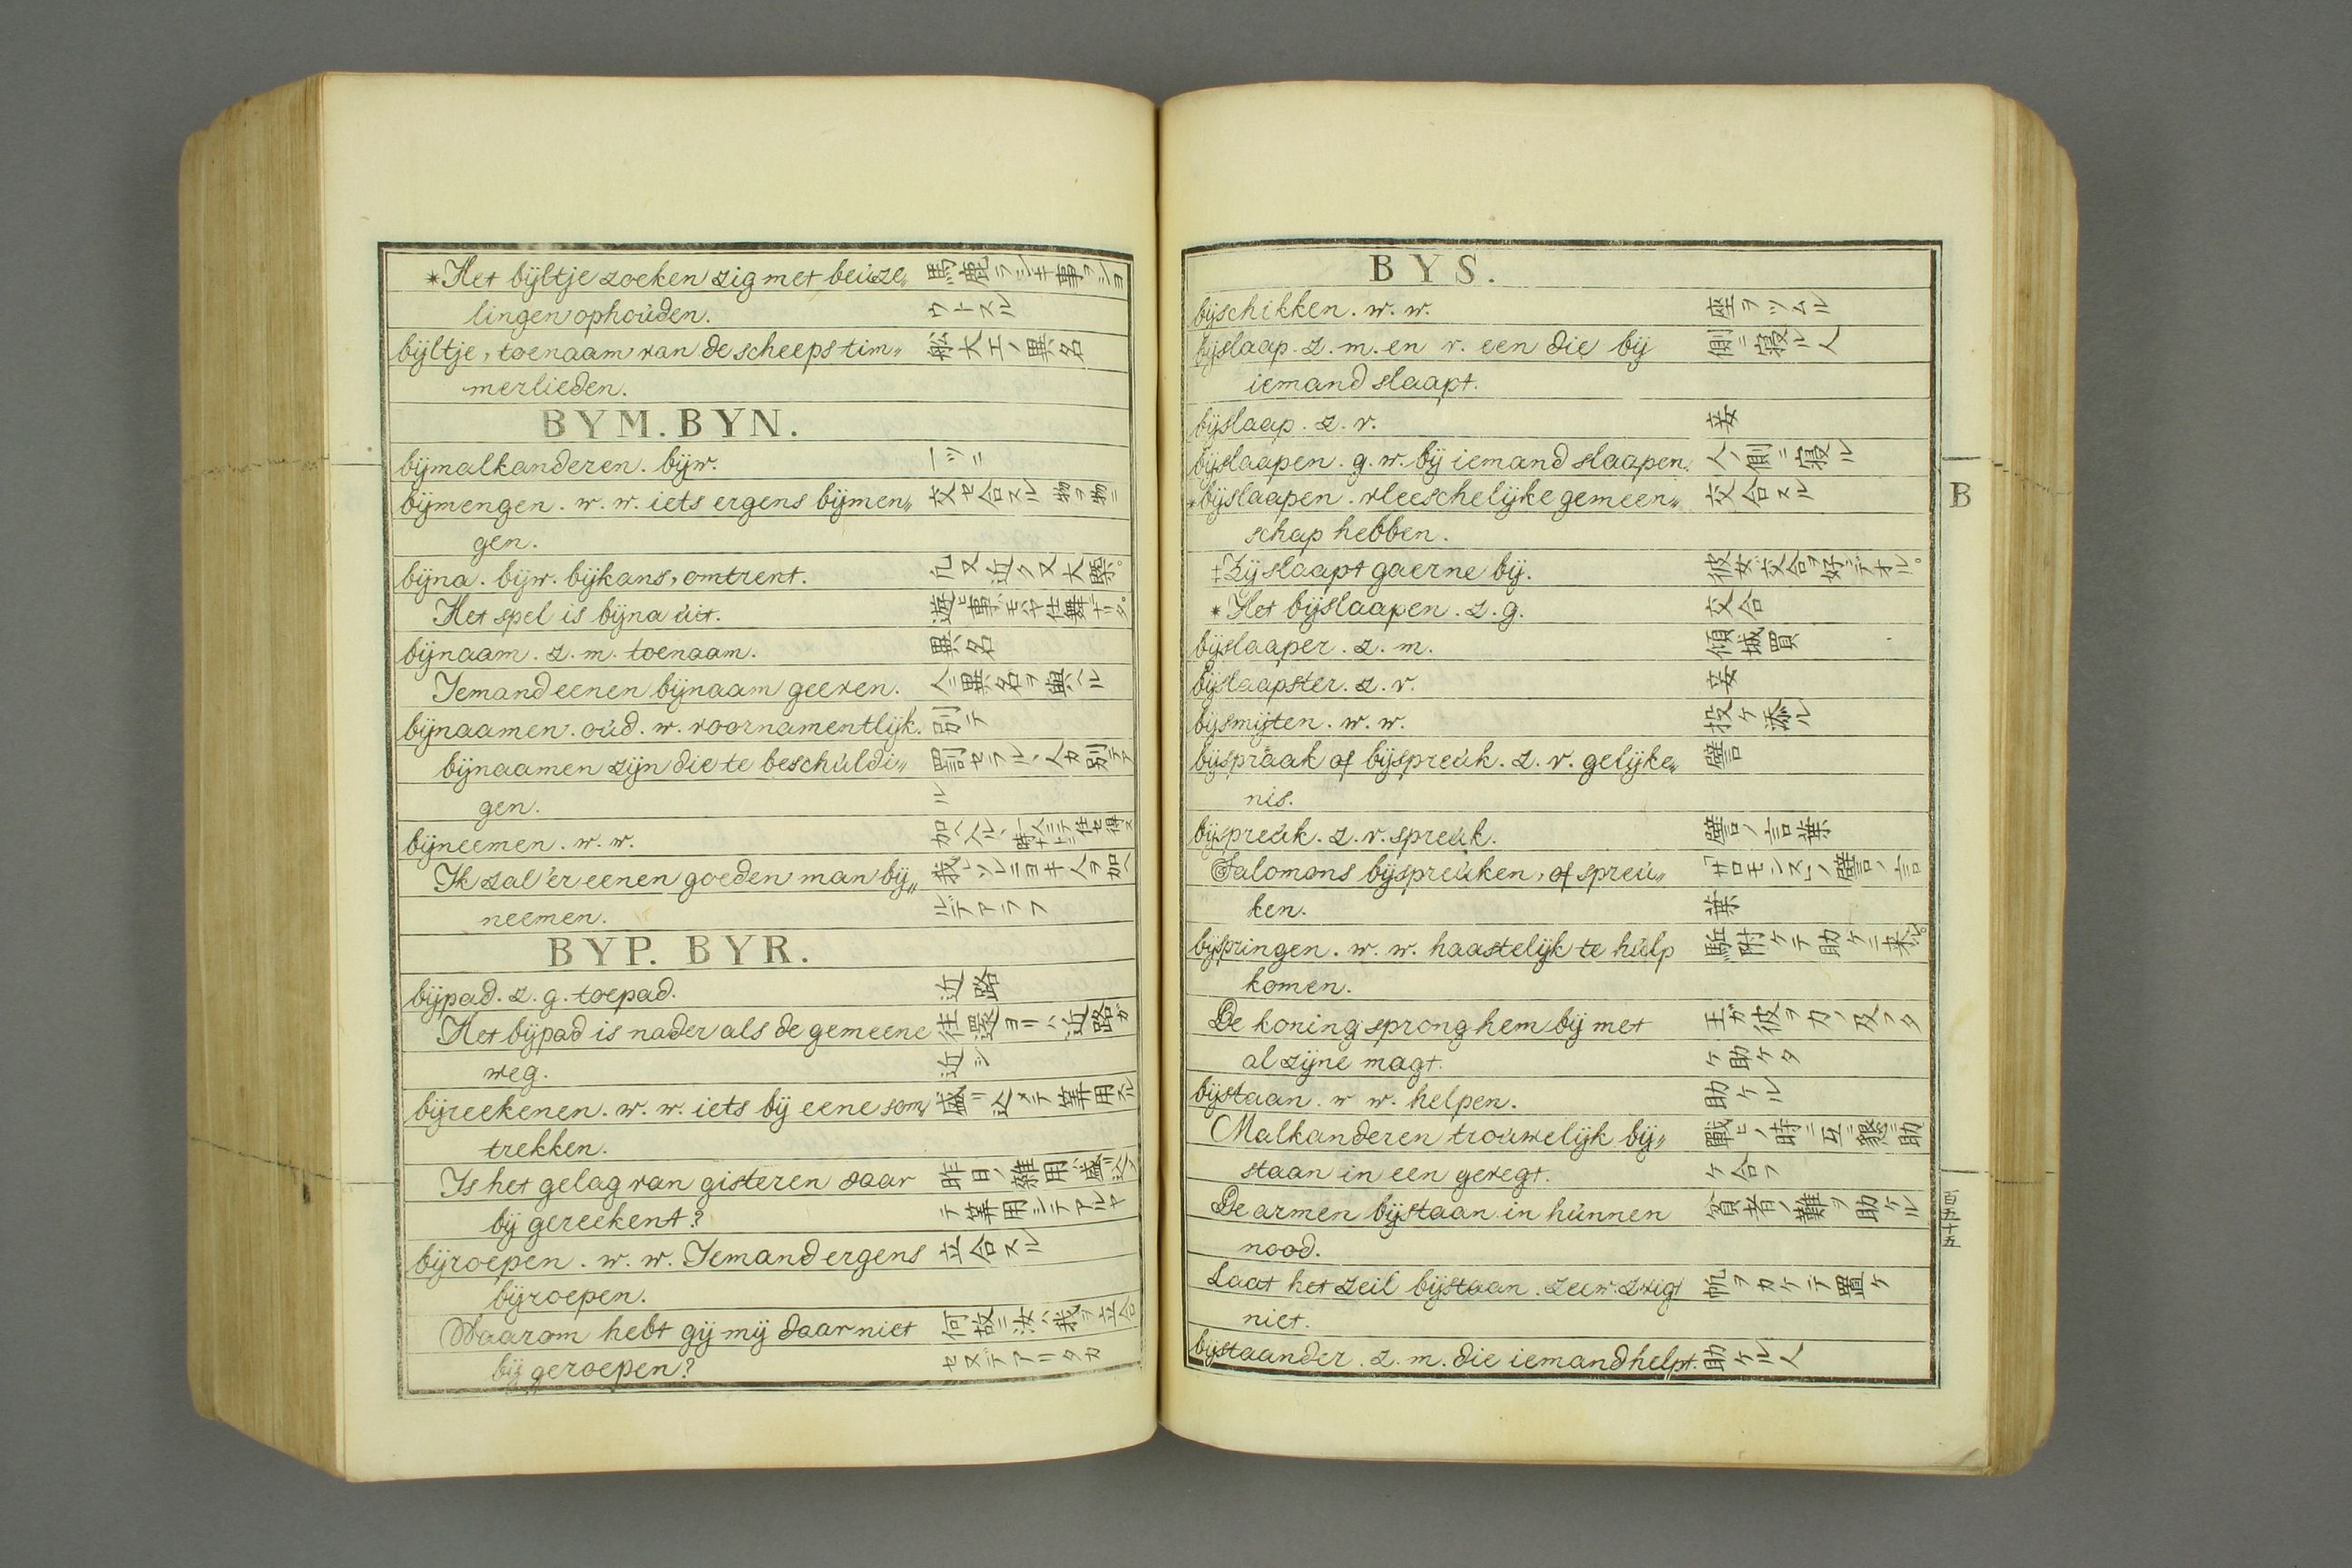 *Het bijltje zoeken zig met beúze„ 馬鹿ラシキ事ヲシヨ
lingen ophoúden. ウトスル
bijltje, toenaam van de scheeps tim„ 舩大工ノ異名
merlieden.
BYM. BYN.
bijmalkanderen. bijw. 一ツニ
bijmengen. w. w. iets ergens bijmen„ 交セ合スル 物ヲ物ニ
gen.
bijna. bijw. bijkans, omtrent. 凢又近ク又大槩。
Het spel is bijna úit. 遊ヒ事モハヤ仕舞ナリタ。
bijnaam. z. m. toenaam. 異名
Iemand eenen bijnaam geeven. 人ニ異名ヲ與ヘル
bijnaamen. oúd. w. voornamentlijk. 別テ
bijnaamen zijn die te beschúldi„ 罰セラルヽ人カ別テア
gen. ル
bijneemen. w. w.
Ik zal 'er eenen goeden man bij„ 我レソレニヨキ人ヲ加ヘ
neemen. ルデアラフ
BYP. BYR.
bijpad. z. g. toepad. 近路
Het bijpad is nader als de gemeene 往還ヨリハ近路ガ
weg. 近シ
bijreekenen. w. w. iets bij eene som 盛リ込メテ筭用スル
trekken.
Is het gelag van gisteren daar 昨日ノ雑用ハ盛リ込メ
bij gereekent? テ筭用シテアルヤ
bijroepen. w. w. Iemand ergens 立合スル
bijroepen.
Waarom hebt gij mij daar niet 何故ニ汝ハ我ヲ立合
bij geroepen? セヌデアリタカ
BYS.
bijschikken. w. w. 座ヲツムル
bijslaap. z. m. en v. een die bij 側ニ寝ル人
iemand slaapt.
bijslaap. z. v. 妾
bijslaapen. g. w. bij iemand slaapen. 人ノ側ニ寝ル
*bijslaapen. vleeschelijke gemeen„ 交合スル
schap hebben.
‡Zij slaapt gaerne bij. 彼女交合ヲ好ンデオル。
*Het bijslaapen. z. g. 交合
bijslaaper. z. m. 傾城買
bijslaapster. z. v. 妾
bijsmijten. w. w. 投ケ添ル
bijspraak of bijspreúk. z. v. gelijke„ 譬
nis.
bijspreúk. z. v. spreúk. 譬ノ言葉
Salomons bijspreúken, of spreú„ 「サロモンス」ノ譬ノ言
ken. 葉
bijspringen. w. w. haastelijk te húlp 駈附ケテ助ケニ来ル。
komen.
De koning sprong hem bij met 王ガ彼ヲ力ノ及フタ
al zijne magt. ケ助ケタ
bijstaan. w w. helpen. 助ケル
Malkanderen troúwelijk bij„ 戰ヒノ時ニ互ニ懇ニ助
staan in een gevegt. ケ合フ
De armen bijstaan in húnnen 貧者ノ難ヲ助ケル
nood.
Laat het zeil bijstaan. zeew. zwigt 帆ヲカケテ置ケ
niet.
bijstaander. z. m. die iemand helpt. 助ケル人
B